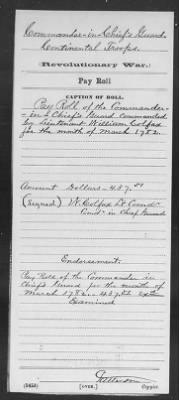 Commander-in-Chief's Guard
Continental Troops.
Revolutionary War.
Pay Roll
CAPTION OF ROLL.
Pay Roll of the Commander-
-in-Chief's Guard commanded
by Lieutenant William Colfax
for the month of March 1782.
Amount Dollars - 437.
(Signed) W. Colfax Lt Comd
Comd in Chief Guard
Endorsement.
Pay Roll of the Commander in
Chief's Guard for the month of
March 1782
Examined
[OVER.]
Copyist.